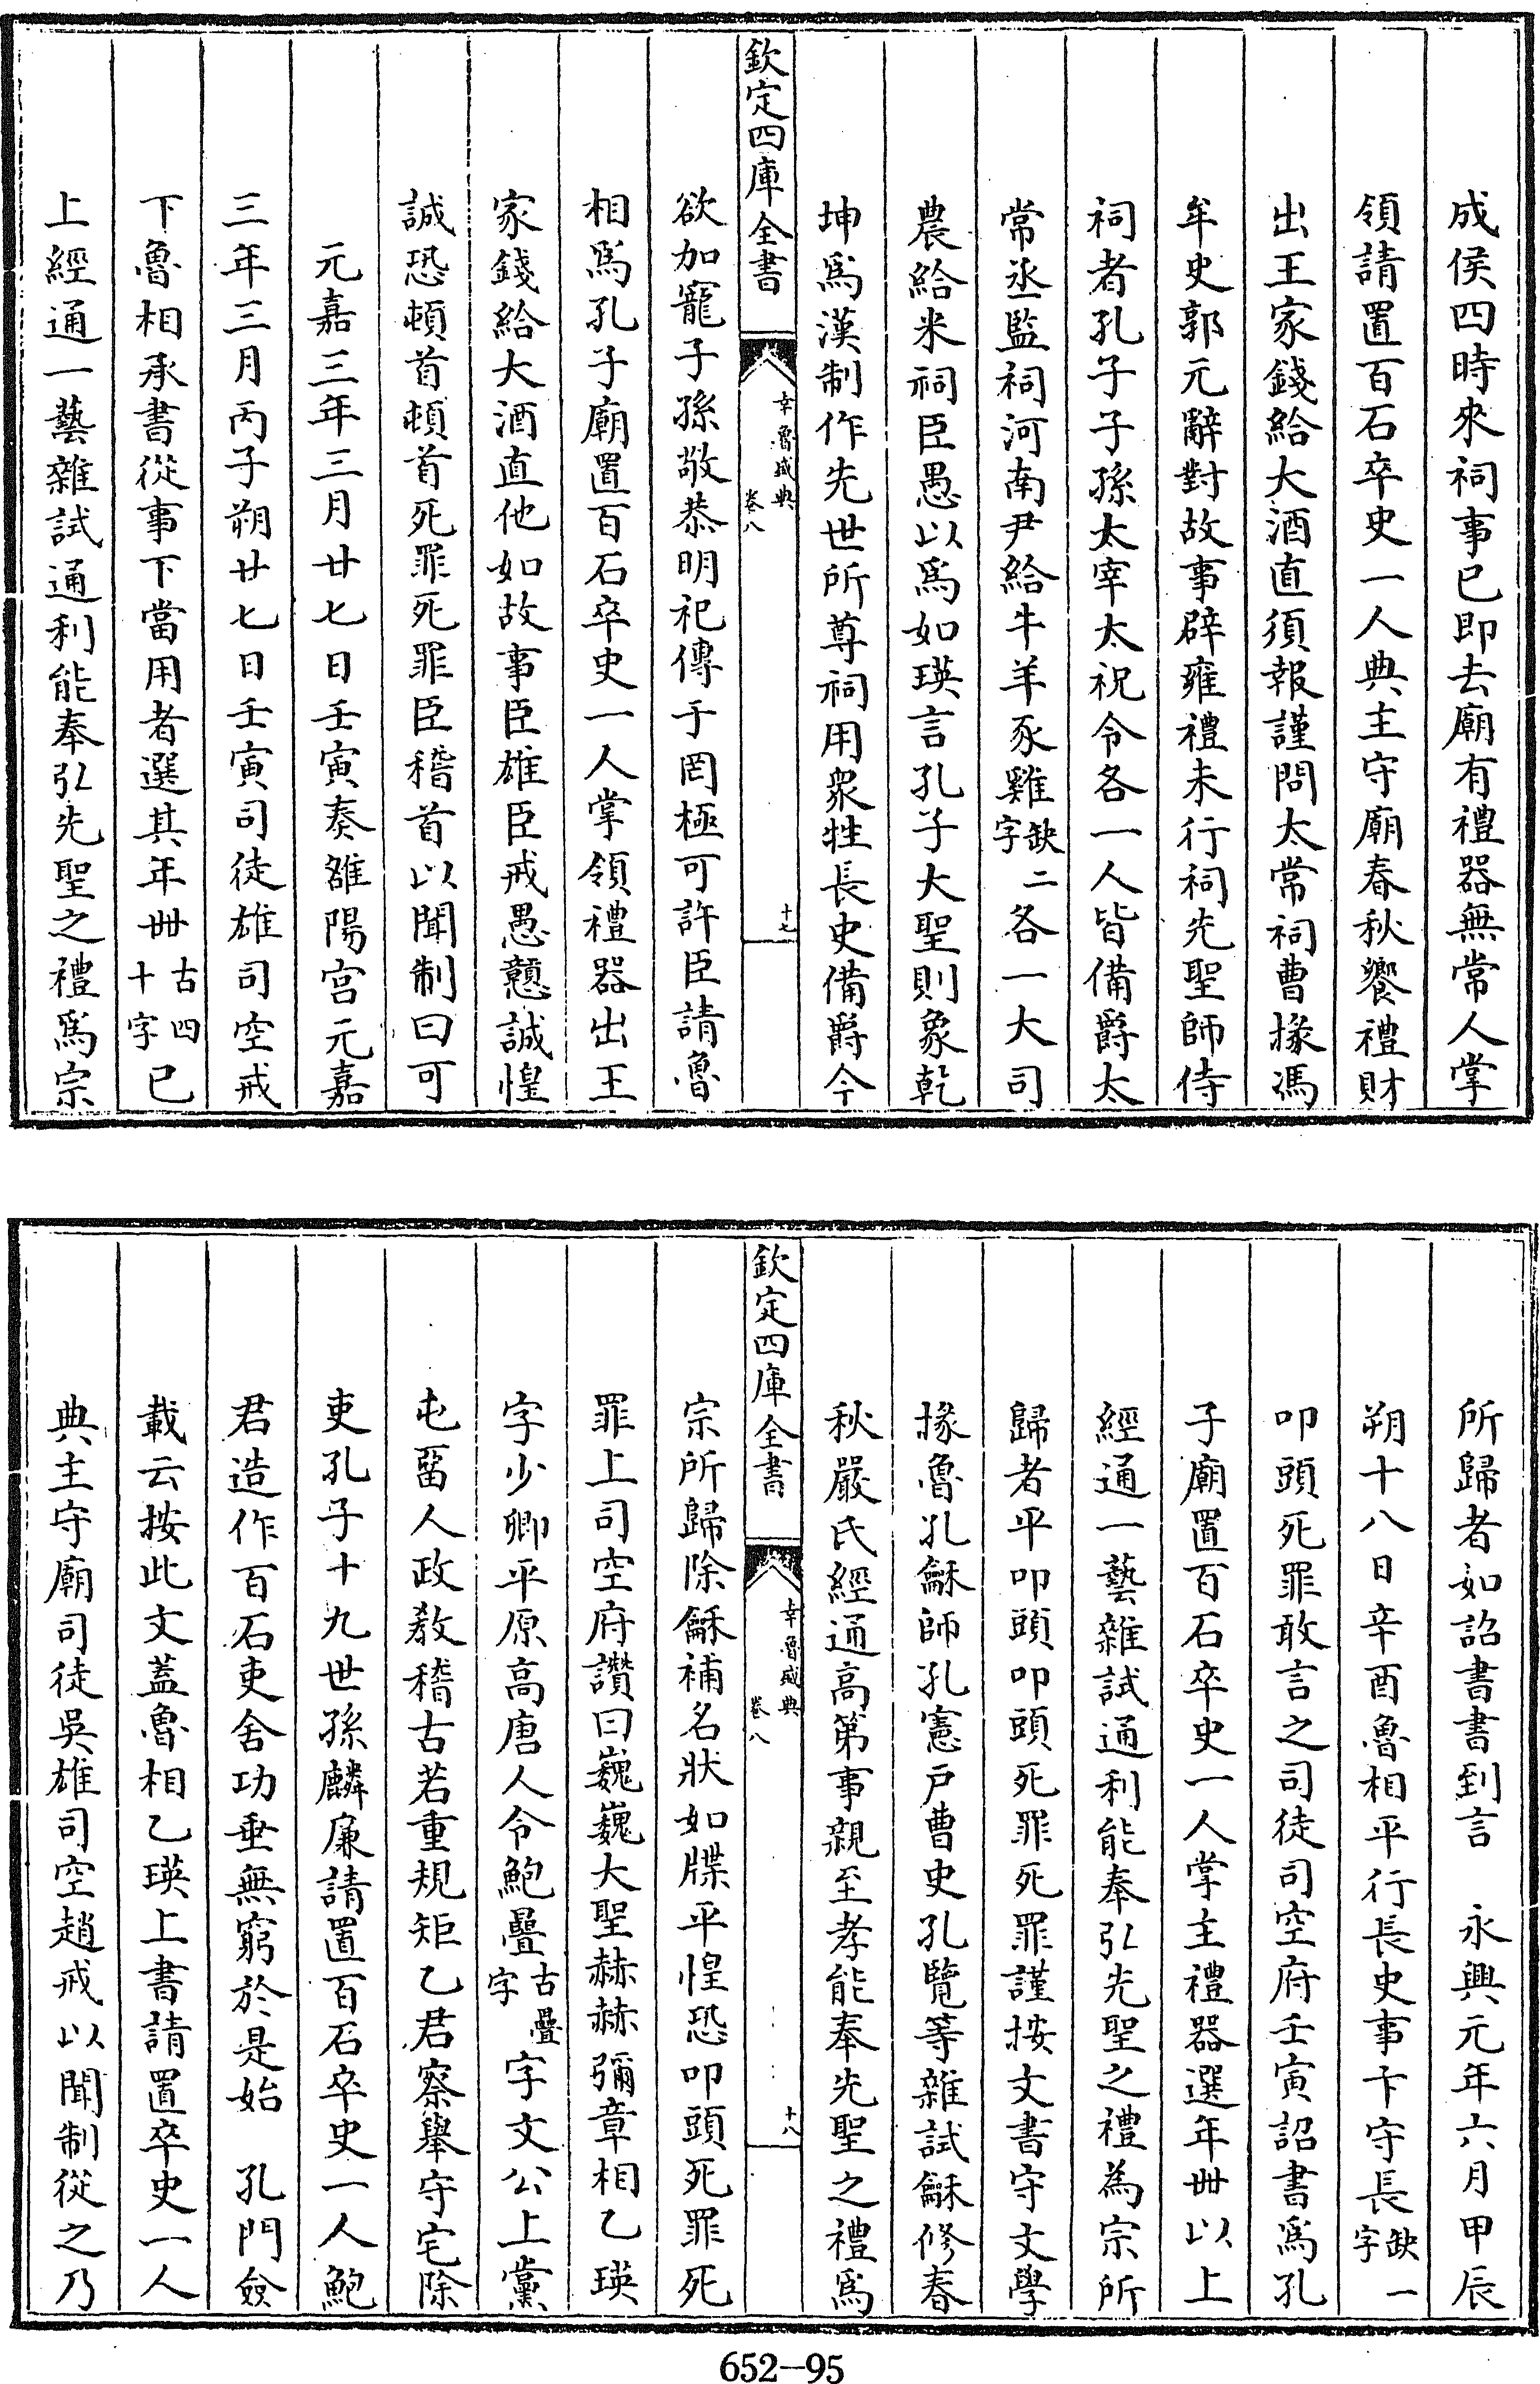 成侯四時來祠事已即去廟有禮器無常人掌
領請置百石卒史一人典主守廟春秋饗禮財
出王家錢給大酒直須報謹問太常祠曹掾馮
牟史郭元辭對故事辟雍禮未行祠先聖師侍
祠者孔子子孫太宰太祝令各一人皆備爵太
常丞監祠河南尹給牛羊豕雞缺二字各一大司
農給米祠臣愚以為如瑛言孔子大聖則象乾
坤為漢制作先世所尊祠用衆牲長史備爵今
欽定四庫全書
幸魯盛典
卷八
十七
欲加寵子孫敬恭明祀傳于罔極可許臣請魯
相為孔子廟置百石卒史一人掌領禮器出王
家錢給大酒直他如故事臣雄臣戒愚戇誠惶
誠恐頓首頓首死罪死罪臣稽首以聞制曰可
元嘉三年三月廿七日壬寅奏雒陽宮元嘉
三年三月丙子朔廿七日壬寅司徒雄司空戒
下魯相承書從事下當用者選其年卌古四十字已
上經通一藝雜試通利能奉弘先聖之禮為宗
所歸者如詔書書到言　永興元年六月甲辰
朔十八日辛酉魯相平行長史事卞守長缺一字
叩頭死罪敢言之司徒司空府壬寅詔書為孔
子廟置百石卒史一人掌主禮器選年卌以上
經通一藝雜試通利能奉弘先聖之禮為宗所
歸者平叩頭叩頭死罪死罪謹按文書守文學
掾魯孔龢師孔憲戶曹史孔覽等雜試龢修春
秋嚴氏經通高第事親至孝能奉先聖之禮為
欽定四庫全書
幸魯盛典
卷八
十八
宗所歸除龢補名狀如牒平惶恐叩頭死罪死
罪上司空府讚曰巍巍大聖赫赫彌章相乙瑛
字少卿平原高唐人令鮑疊古疊字字文公上黨
屯留人政教稽古若重規矩乙君察舉守宅除
吏孔子十九世孫麟廉請置百石卒史一人鮑
君造作百石吏舍功垂無窮於是始　孔門僉
載云按此文蓋魯相乙瑛上書請置卒史一人
典主守廟司徒吳雄司空趙戒以聞制從之乃
652-95